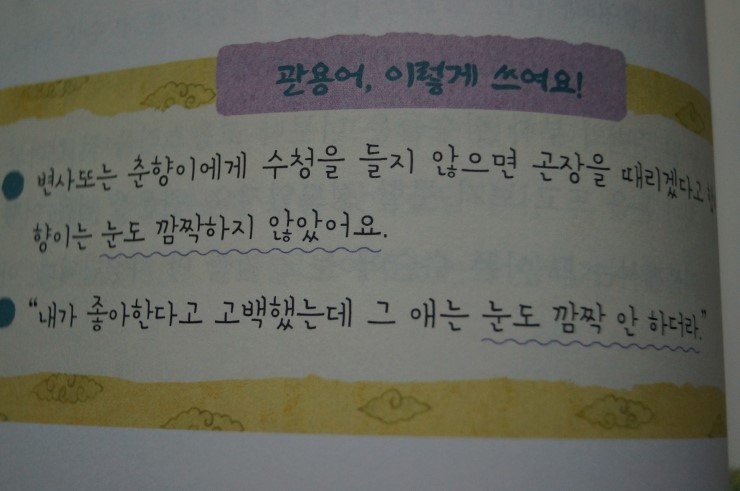 관용어, 이렇게 쓰여요!
변사또는 춘향이에게 수청을 들지 않으면 곤장을 때리겠다고
향이는 눈도 깜짝하지 않았어요.
“내가 좋아한다고 고백했는데 그 애는 눈도 깜짝 안 하더라.”